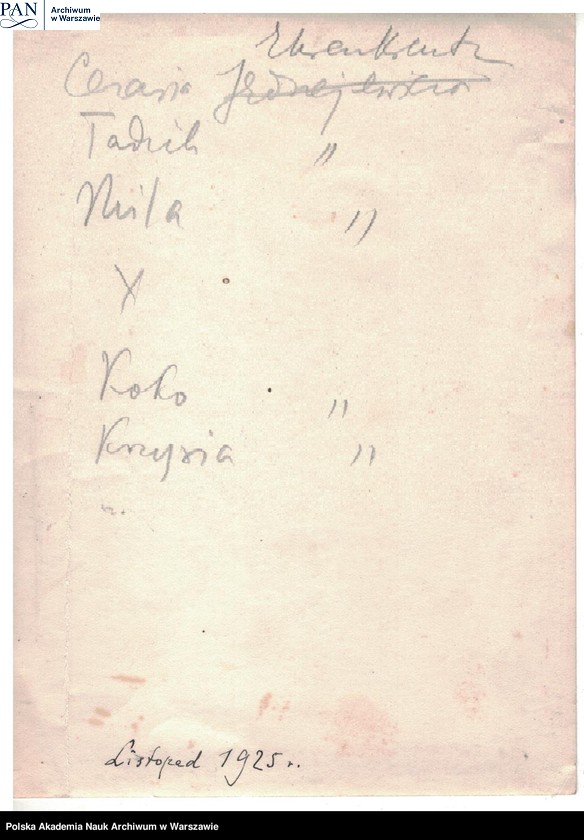 PAN
Archiwum
w Warszawie
Ehrenkreutz
Cezaria Jędrzejewicz
Tadzik "
Mila "
X
Koko "
Krzysia "
Listopad 1925 r.
Polska Akademia Nauk Archiwum w Warszawie